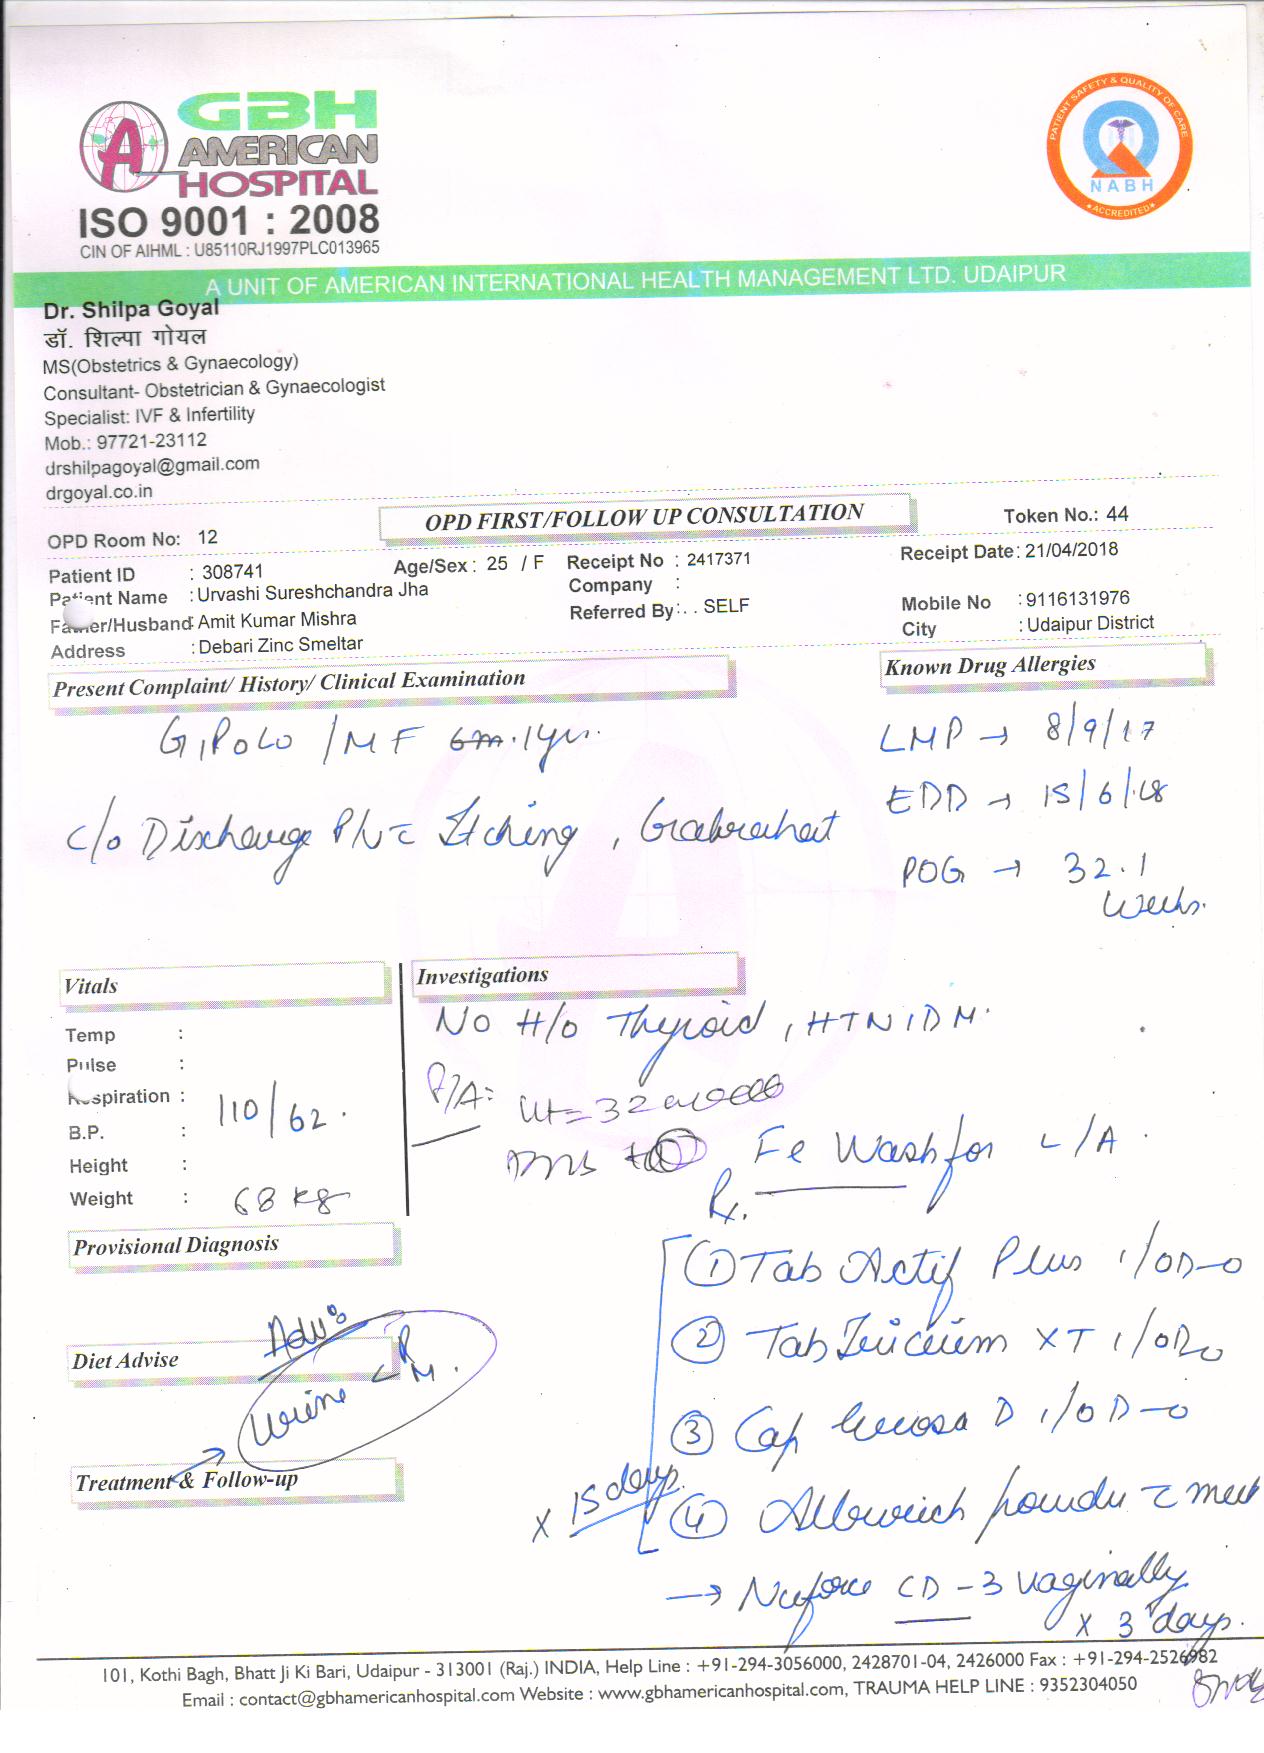 GBH
AMERICAN
HOSPITAL
ISO 9001 : 2008
CIN OF AIHML : U85110RJ1997PLC013965
PATIENT SAFETY & QUALITY OF CARE
NABH
ACCREDITED
A UNIT OF AMERICAN INTERNATIONAL HEALTH MANAGEMENT LTD. UDAIPUR
Dr. Shilpa Goyal
डॉ. शिल्पा गोयल
MS(Obstetrics & Gynaecology)
Consultant- Obstetrician & Gynaecologist
Specialist: IVF & Infertility
Mob.: 97721-23112
drshilpagoyal@gmail.com
drgoyal.co.in
OPD Room No: 12 OPD FIRST/FOLLOW UP CONSULTATION Token No.: 44
Patient ID : 308741 Age/Sex : 25 / F Receipt No : 2417371 Receipt Date: 21/04/2018
Patient Name : Urvashi Sureshchandra Jha Company :
Father/Husband: Amit Kumar Mishra Referred By : . . SELF Mobile No : 9116131976
Address : Debari Zinc Smeltar City : Udaipur District
Present Complaint/ History/ Clinical Examination Known Drug Allergies
G1P0L0 / MF 6m. 1yr. LMP → 8/9/17
EDD → 15/6/18
c/o Discharge P/V c Itching, Gabrahat
POG → 32.1
Weeks.
Vitals Investigations
No H/o Thyroid, HTN, DM.
Temp :
Pulse :
Respiration :
B.P. : 110/62.
Height :
Weight : 68 kg
P/A:
ut = 32 weeks
Wash for L/A.
Rx.
Provisional Diagnosis
① Tab Actif Plus 1/OD
② Tab XT 1/OD
③ Cap D 1/OD
④ powder c milk
x 15 days
Adv:
Urine RM.
Diet Advise
Treatment & Follow-up
→ Nuforce CD-3 vaginally
x 3 days.
101, Kothi Bagh, Bhatt Ji Ki Bari, Udaipur - 313001 (Raj.) INDIA, Help Line : +91-294-3056000, 2428701-04, 2426000 Fax : +91-294-2526982
Email : contact@gbhamericanhospital.com Website : www.gbhamericanhospital.com, TRAUMA HELP LINE : 9352304050